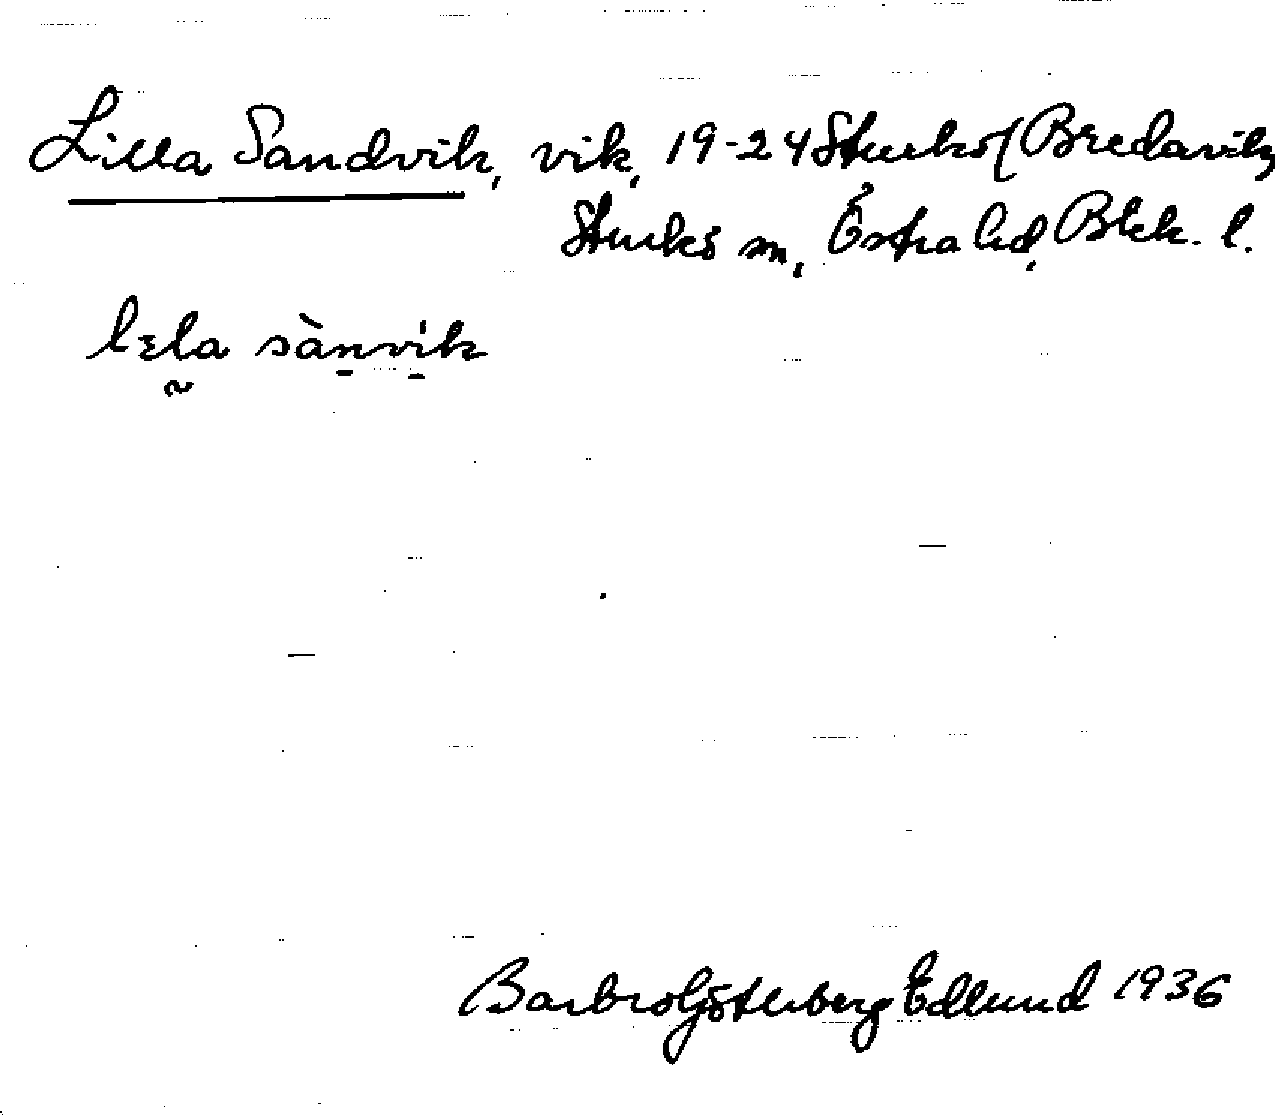 Lilla Sandvik, vik, 19-24 Sturkö (Bredavik,
Sturkö sn, Östra hd, Blek. l.
lɛla sànvik
Barbro Götlerberg Edlund 1936